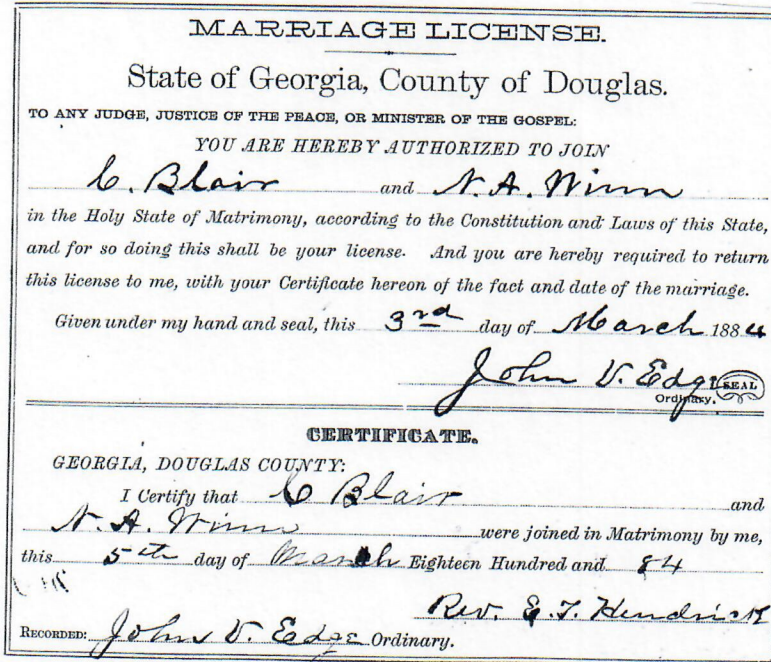 MARRIAGE LICENSE.
State of Georgia, County of Douglas.
TO ANY JUDGE, JUSTICE OF THE PEACE, OR MINISTER OF THE GOSPEL:
YOU ARE HEREBY AUTHORIZED TO JOIN
C. Blair and N. A. Winn
in the Holy State of Matrimony, according to the Constitution and Laws of this State,
and for so doing this shall be your license. And you are hereby required to return
this license to me, with your Certificate hereon of the fact and date of the marriage.
Given under my hand and seal, this 3rd day of March 1884
John V. Edge SEAL
Ordinary.
CERTIFICATE.
GEORGIA, DOUGLAS COUNTY:
I Certify that C Blair and
N. A. Winn were joined in Matrimony by me,
this 5th day of March Eighteen Hundred and 84
Rev. E. T. Hendrick
RECORDED: John V. Edge Ordinary.